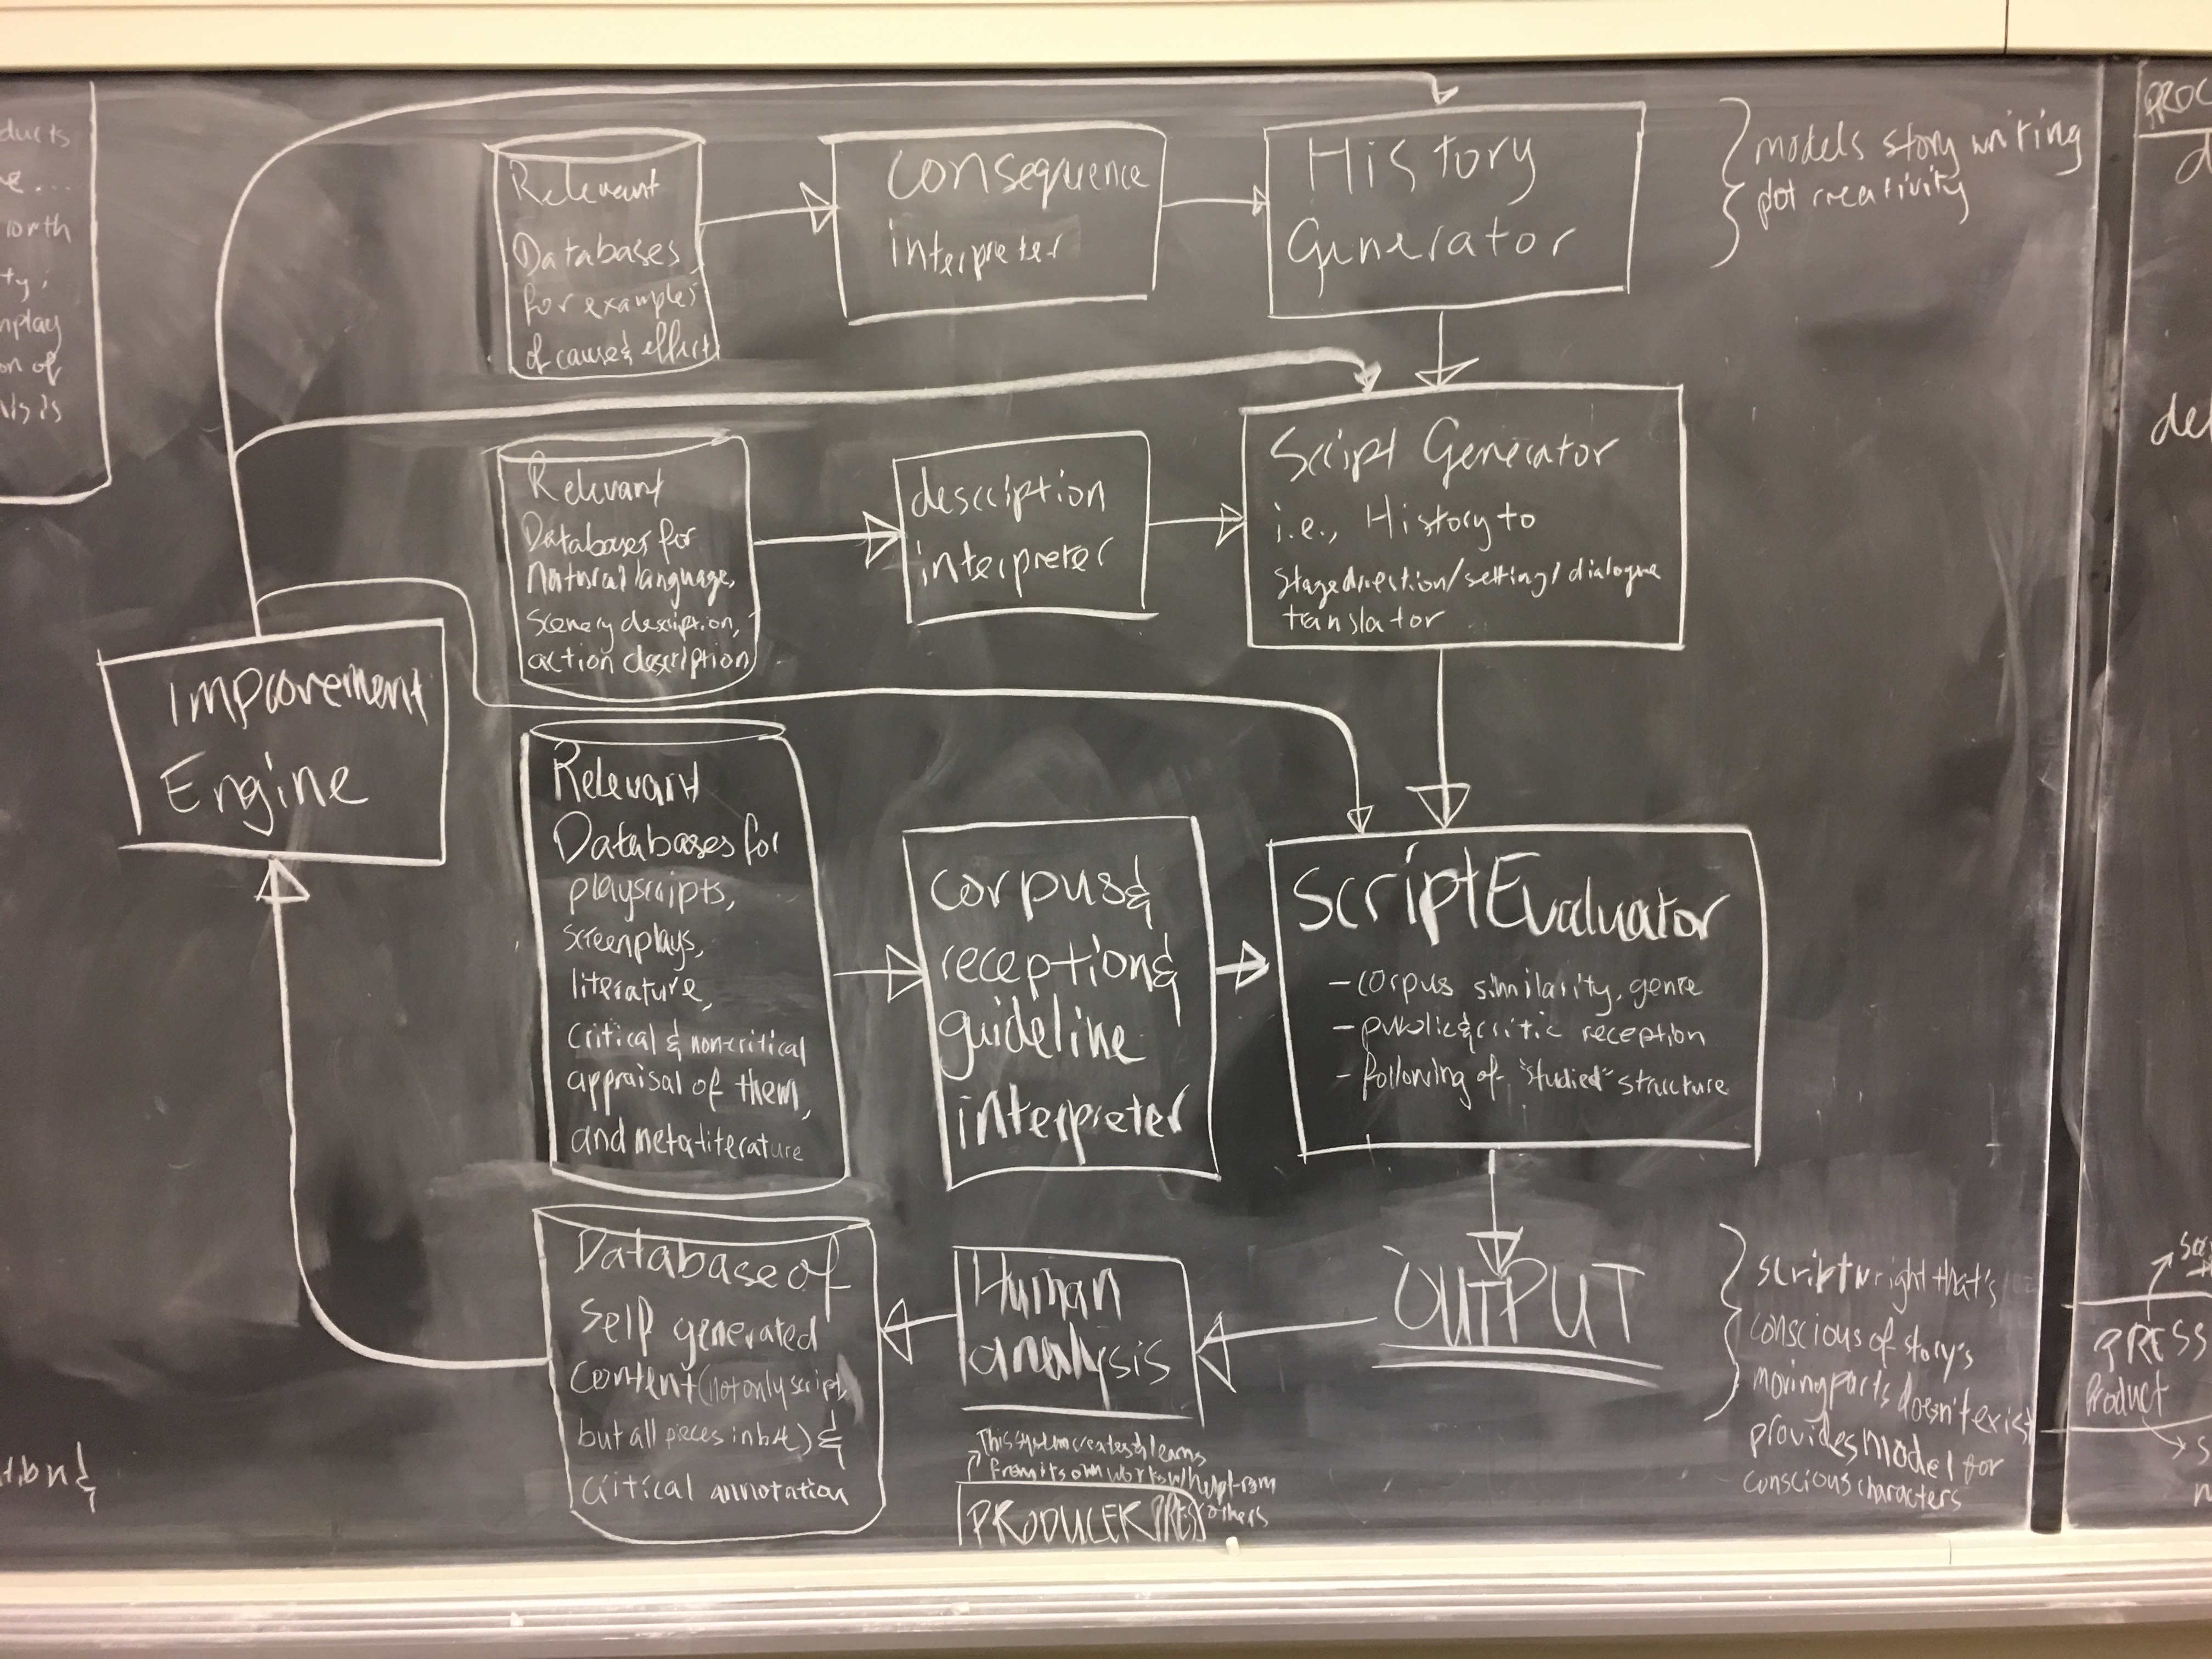 ducts
e...
worth
ty;
nplay
on of
Relevant
Databases
for examples
of cause & effect
Consequence
interpreter
History
Generator
models story writing
plot creativity
PROC
Relevant
Databases for
Natural language,
scenery description,
action description
description
interpreter
Script Generator
i.e., History to
stage direction/setting/dialogue
translator
Improvement
Engine
Relevant
Databases for
playscripts,
screenplays,
literature,
critical & non-critical
appraisal of them,
and meta-literature
corpus &
reception &
guideline
interpreter
Script Evaluator
- corpus similarity, genre
- public & critic reception
- following of "studied" structure
Database of
Self generated
Content (not only script,
but all pieces in b/t) &
critical annotation
Human
analysis
OUTPUT
scriptwright that's
conscious of story's
moving parts doesn't exist
provides model for
conscious characters
This system creates & learns
from its own works w/ input from
others
PRODUCER PRESS
PRESS
Product
tion &